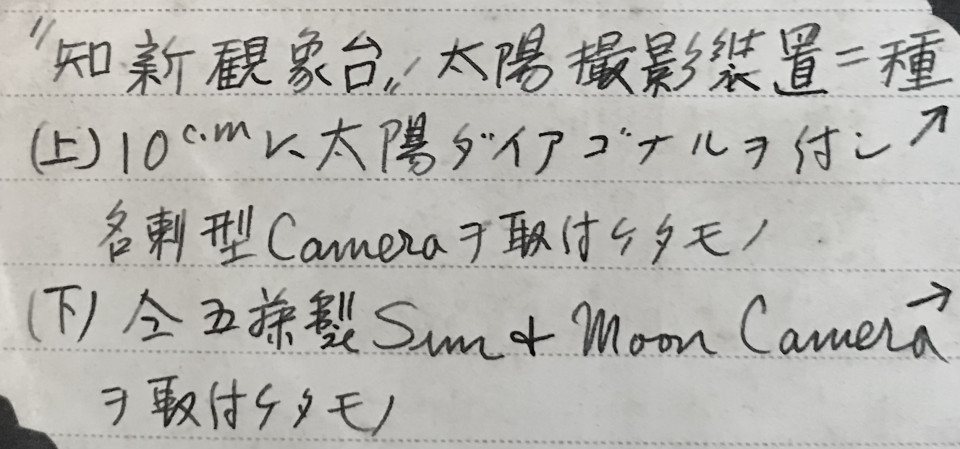 〝知新観象台〟太陽撮影装置二種
(上)10c.mニ太陽ダイアゴナルヲ付シ↗
名刺型Cameraヲ取付ケタモノ
(下)仝五藤製Sun & Moon Camera→
ヲ取付ケタモノ